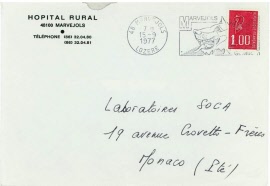 HOPITAL RURAL
48100 MARVEJOLS
TÉLÉPHONE (66) 32.04.80
(66) 32.04.81
48 MARVEJOLS
15-9
1977
LOZERE
MARVEJOLS
1.00
Laboratoires SOCA
19 avenue Crovetto-Frères
Monaco (Pté)